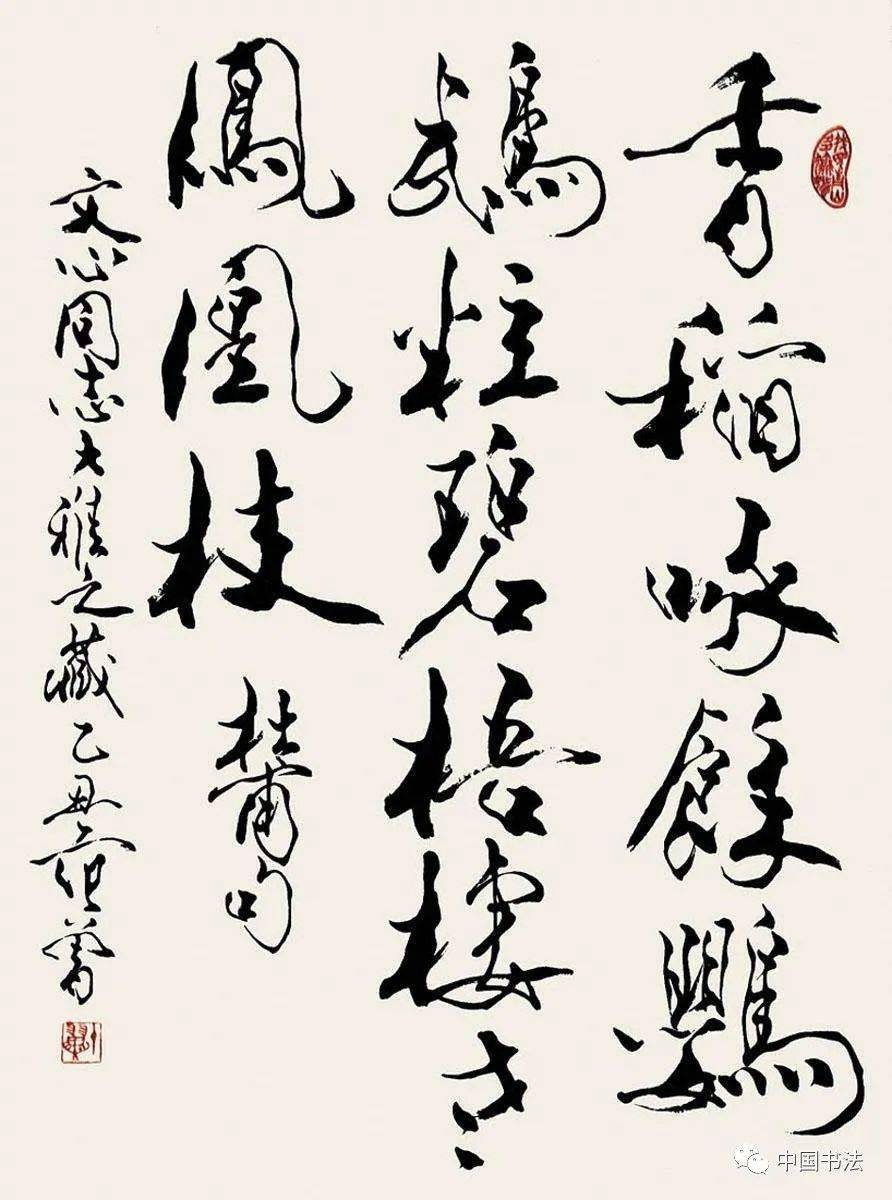 香稻啄餘鸚
鵡粒碧梧棲老
鳳凰枝 杜甫句
文心同志大雅之藏乙丑范曾
中国书法